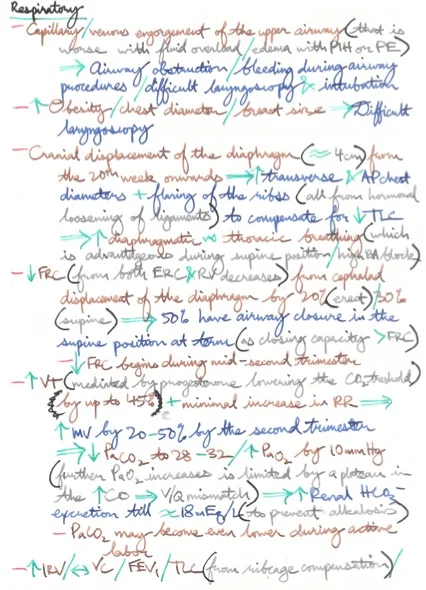 Respiratory
- Capillary/venous engorgement of the upper airway (that is
worse with fluid overload/edema with PIH or PE)
⇒ Airway obstruction/bleeding during airway
procedures/difficult laryngoscopy & intubation
- ↑Obesity/chest diameter/breast size ⇒ Difficult
laryngoscopy
- Cranial displacement of the diaphragm (≈4cm) from
the 20th week onwards ⇒ ↑transverse & AP chest
diameters + flaring of the ribs (all from hormonal
loosening of ligaments) to compensate for ↓TLC
⇒ ↑diaphragmatic vs thoracic breathing (which
is advantageous during supine position/high RA block)
- ↓FRC (from both ERC & RV decreases) from cephaled
displacement of the diaphragm by 20% (erect)/30%
(supine) ⇒ 50% have airway closure in the
supine position at term (as closing capacity >FRC)
- ↓FRC begins during mid-second trimester
- ↑VT (mediated by progesterone lowering the CO2 threshold)
(by up to 45%) + minimal increase in RR ⇒
↑MV by 20-50% by the second trimester
⇒ ↓PaCO2 to 28-32/↑PaO2 by 10mmHg
(further PaO2 increases is limited by a plateau in
the ↑CO ⇒ V/Q mismatch) ⇒ ↑Renal HCO3-
excretion till ≈18mEq/L (to prevent alkalosis)
- PaCO2 may become even lower during active
labor
- ↑IRV/↔VC/FEV1/TLC (from ribcage compensation)/